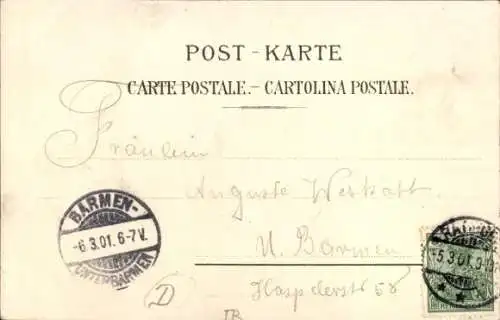 POST - KARTE
CARTE POSTALE.– CARTOLINA POSTALE.
Fräulein
Auguste Weskott
U. Barmen
BARMEN-
-6.3.01. 6-7 V.
UNTERBARMEN
-5.3.01.
D